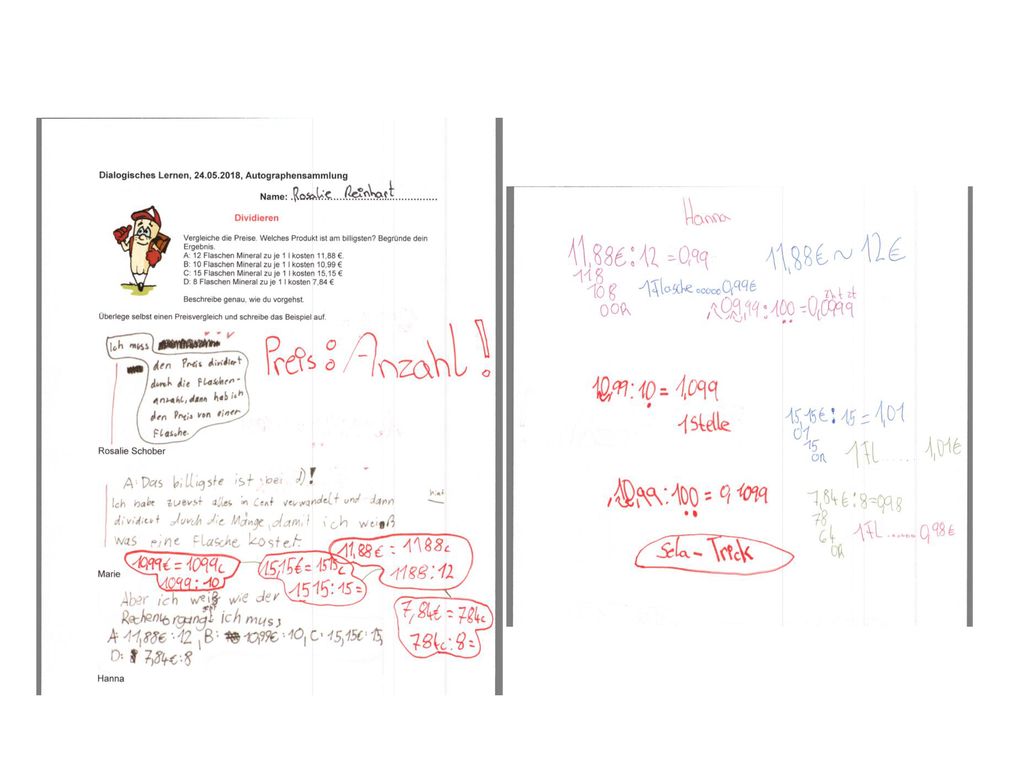 Dialogisches Lernen, 24.05.2018, Autographensammlung
Name: Rosalie Reinhart
Dividieren
Vergleiche die Preise. Welches Produkt ist am billigsten? Begründe dein
Ergebnis.
A: 12 Flaschen Mineral zu je 1 l kosten 11,88 €.
B: 10 Flaschen Mineral zu je 1 l kosten 10,99 €
C: 15 Flaschen Mineral zu je 1 l kosten 15,15 €
D: 8 Flaschen Mineral zu je 1 l kosten 7,84 €
Beschreibe genau, wie du vorgehst.
Überlege selbst einen Preisvergleich und schreibe das Beispiel auf.
Ich muss
den Preis dividiert
durch die Flaschen-
anzahl, dann hab ich
den Preis von einer
Flasche.
Preis : Anzahl!
Rosalie Schober
A: Das billigste ist bei d)!
Ich habe zuerst alles in Cent verwandelt und dann
dividiert durch die Mänge, damit ich weiß
was eine Flasche kostet.
10,99€ = 1099c
1099:10
15,15€ = 1515c
1515:15=
11,88€ = 1188c
1188:12
7,84€ = 784c
784c:8=
Marie
Aber ich weiß wie der
Rechenvorgang ist ich muss
A 11,88€:12, B: 10,99€:10, C: 15,15€:15,
D: 7,84€:8
Hanna
Hanna
11,88€:12 =0,99
118
108
00R
1 Flasche.....0,99€
11,88€ ~ 12€
zht zt
09,99:100=0,0999
10,99:10 = 1,099
1 Stelle
15,15€:15=1,01
01
15
0R
1 Fl...... 1,01€
10,99:100 = 0,1099
Sela-Trick
7,84€:8=0,98
78
64
0R
1 Fl......0,98€